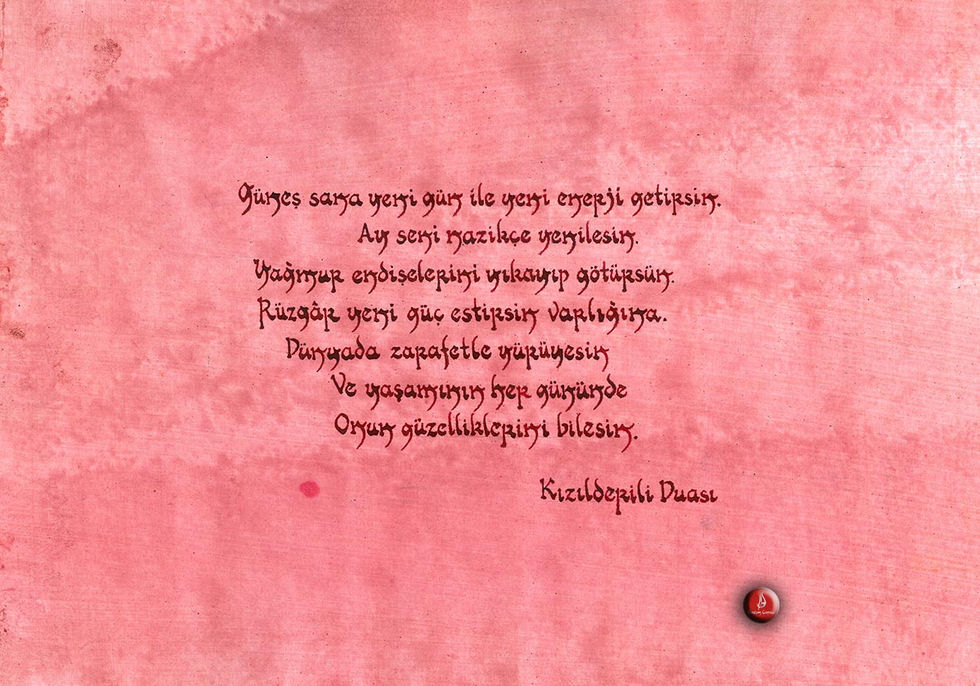 Güneş sana yeni gün ile yeni enerji getirsin.
Ay seni nazikçe yenilesin.
Yağmur endişelerini yıkayıp götürsün.
Rüzgâr yeni güç estirsin varlığına.
Dünyada zarafetle yürüyesin
Ve yaşamının her gününde
Onun güzelliklerini bilesin.
Kızılderili Duası